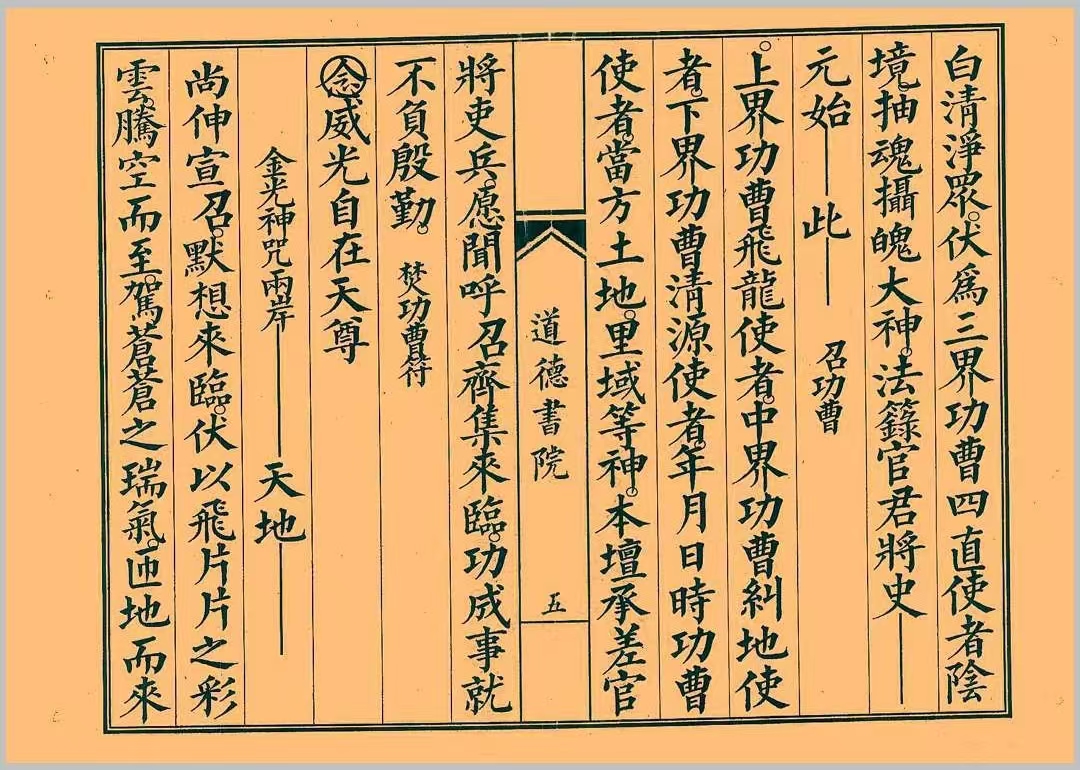 白清淨眾。伏爲三界功曹四直使者陰
境。抽魂攝魄大神。法籙官君將史——
元始——此—— 召功曹
。上界功曹飛龍使者。中界功曹糾地使
者。下界功曹清源使者。年月日時功曹
使者。當方土地。里域等神。本壇承差官
道德書院 五
將吏兵。愿聞呼召齊集來臨。功成事就
不負殷勤。 焚功曹符
念威光自在天尊
金光神咒兩岸——天地——
尚伸宣召。默想來臨。伏以飛片片之彩
雲。騰空而至。駕蒼蒼之瑞氣。匝地而來